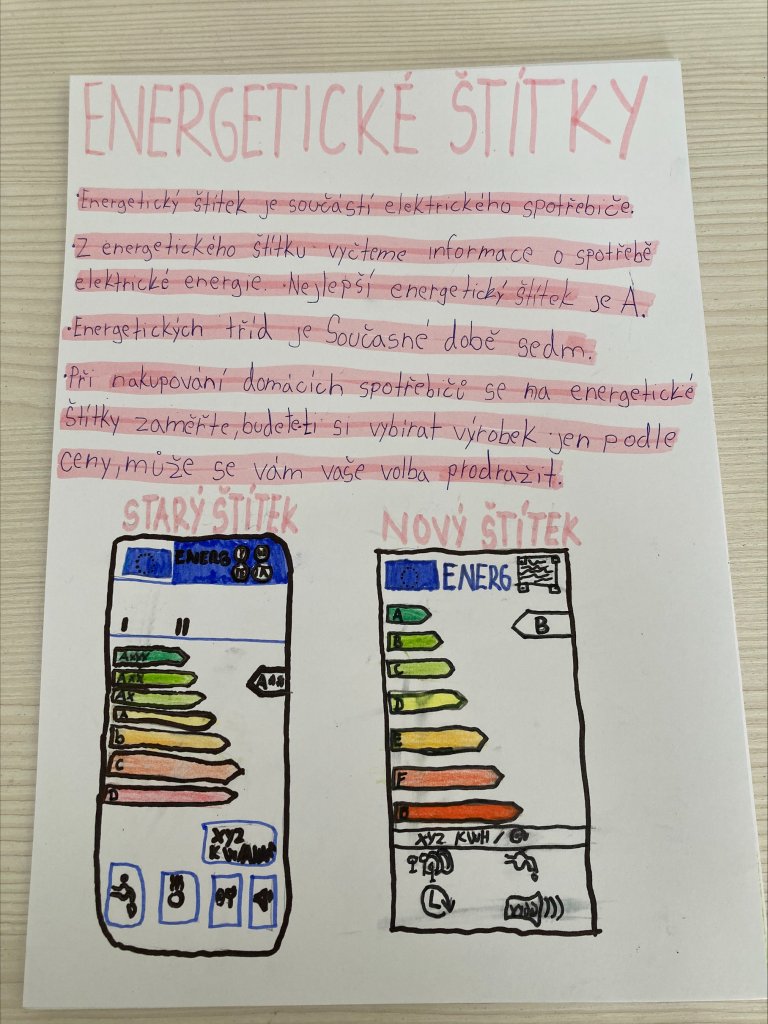 ENERGETICKÉ ŠTÍTKY
·Energetický štítek je součástí elektrického spotřebiče.
·Z energetického štítku vyčteme informace o spotřebě
elektrické energie. ·Nejlepší energetický štítek je A.
·Energetických tříd je Současné době sedm.
·Při nakupování domácích spotřebičů se na energetické
štítky zaměřte, budete-ti si vybírat výrobek jen podle
ceny, může se vám vaše volba prodražit.
STARÝ ŠTÍTEK
NOVÝ ŠTÍTEK
ENERG
I II
A++
A
b
C
D
XYZ
ENERG
A
B
B
C
D
E
F
XYZ KWH /
L